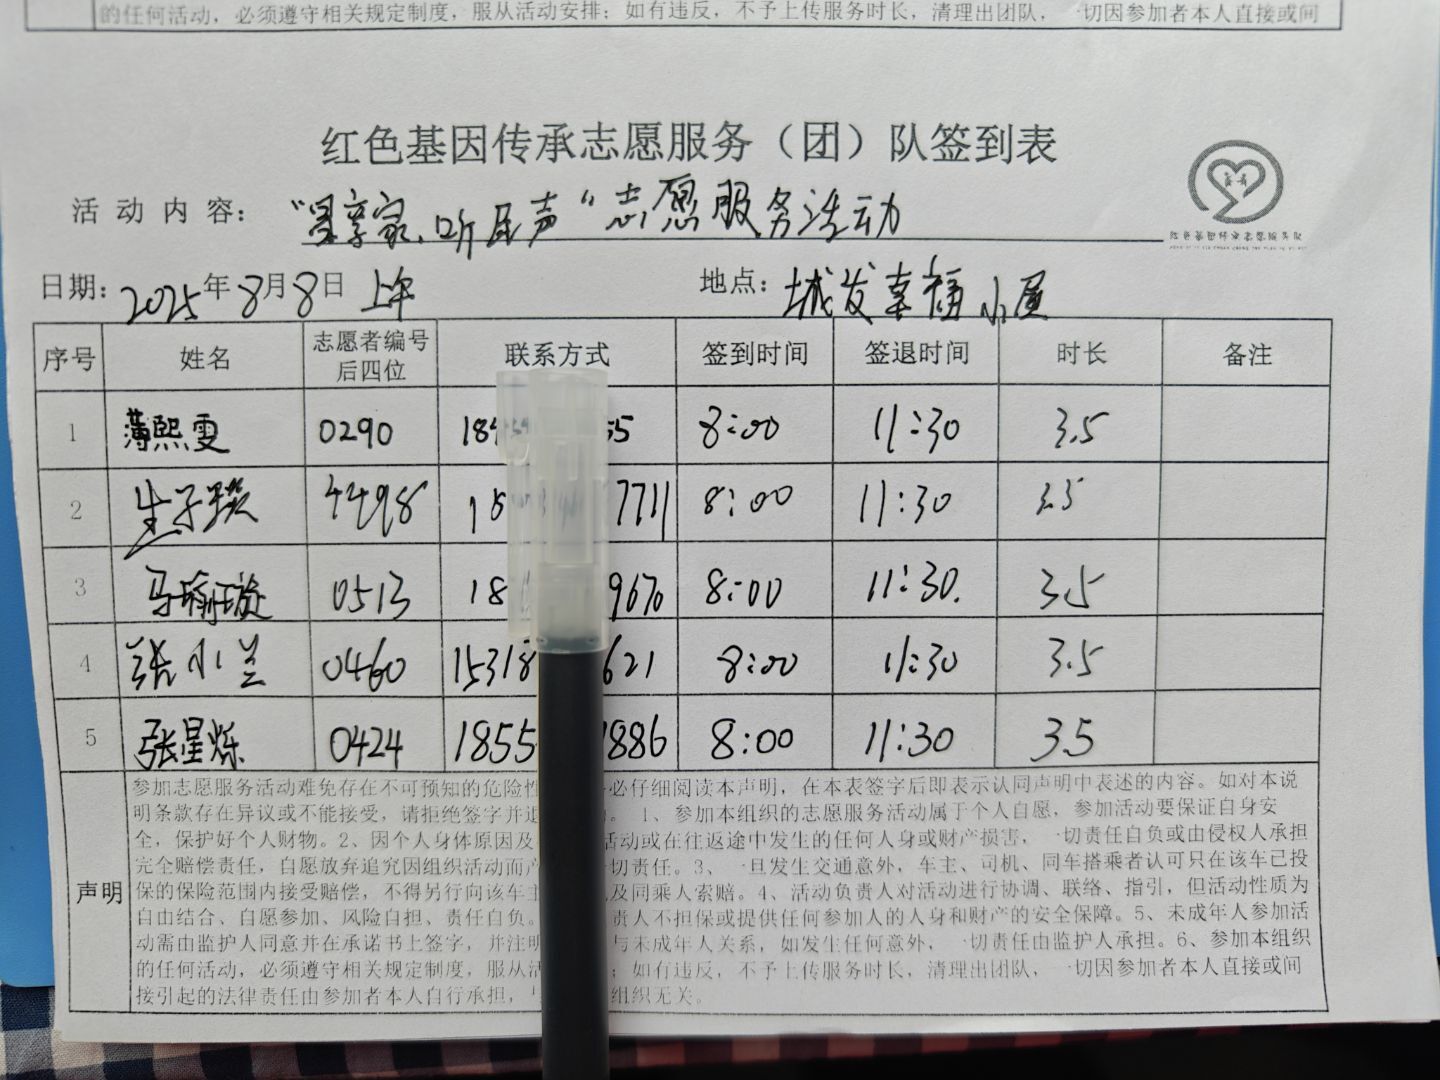 的任何活动，必须遵守相关规定制度，服从活动安排；如有违反，不予上传服务时长，清理出团队，一切因参加者本人直接或间
红色基因传承志愿服务（团）队签到表
活动内容：享家、听民声"志愿服务活动
日期：2025年8月8日 上午 地点：城发幸福小屋
序号 姓名 志愿者编号后四位 联系方式 签到时间 签退时间 时长 备注
1 薄熙雯 0290 18 55 8:00 11:30 3.5
2 4498 18 7711 8:00 11:30 3.5
3 马瑜璇 0513 18 9670 8:00 11:30. 3.5
4 张小兰 0460 15318 621 8:00 11:30 3.5
5 张星烁 0424 1855 1886 8:00 11:30 3.5
声明
参加志愿服务活动难免存在不可预知的危险性 必仔细阅读本声明，在本表签字后即表示认同声明中表述的内容。如对本说
明条款存在异议或不能接受，请拒绝签字并退 。1、参加本组织的志愿服务活动属于个人自愿，参加活动要保证自身安
全，保护好个人财物。2、因个人身体原因及 活动或在往返途中发生的任何人身或财产损害，一切责任自负或由侵权人承担
完全赔偿责任，自愿放弃追究因组织活动而产 一切责任。3、一旦发生交通意外，车主、司机、同车搭乘者认可只在该车已投
保的保险范围内接受赔偿，不得另行向该车主 及同乘人索赔。4、活动负责人对活动进行协调、联络、指引，但活动性质为
自由结合、自愿参加、风险自担、责任自负。 责人不担保或提供任何参加人的人身和财产的安全保障。5、未成年人参加活
动需由监护人同意并在承诺书上签字，并注明 与未成年人关系，如发生任何意外，一切责任由监护人承担。6、参加本组织
的任何活动，必须遵守相关规定制度，服从活 ；如有违反，不予上传服务时长，清理出团队，一切因参加者本人直接或间
接引起的法律责任由参加者本人自行承担， 组织无关。